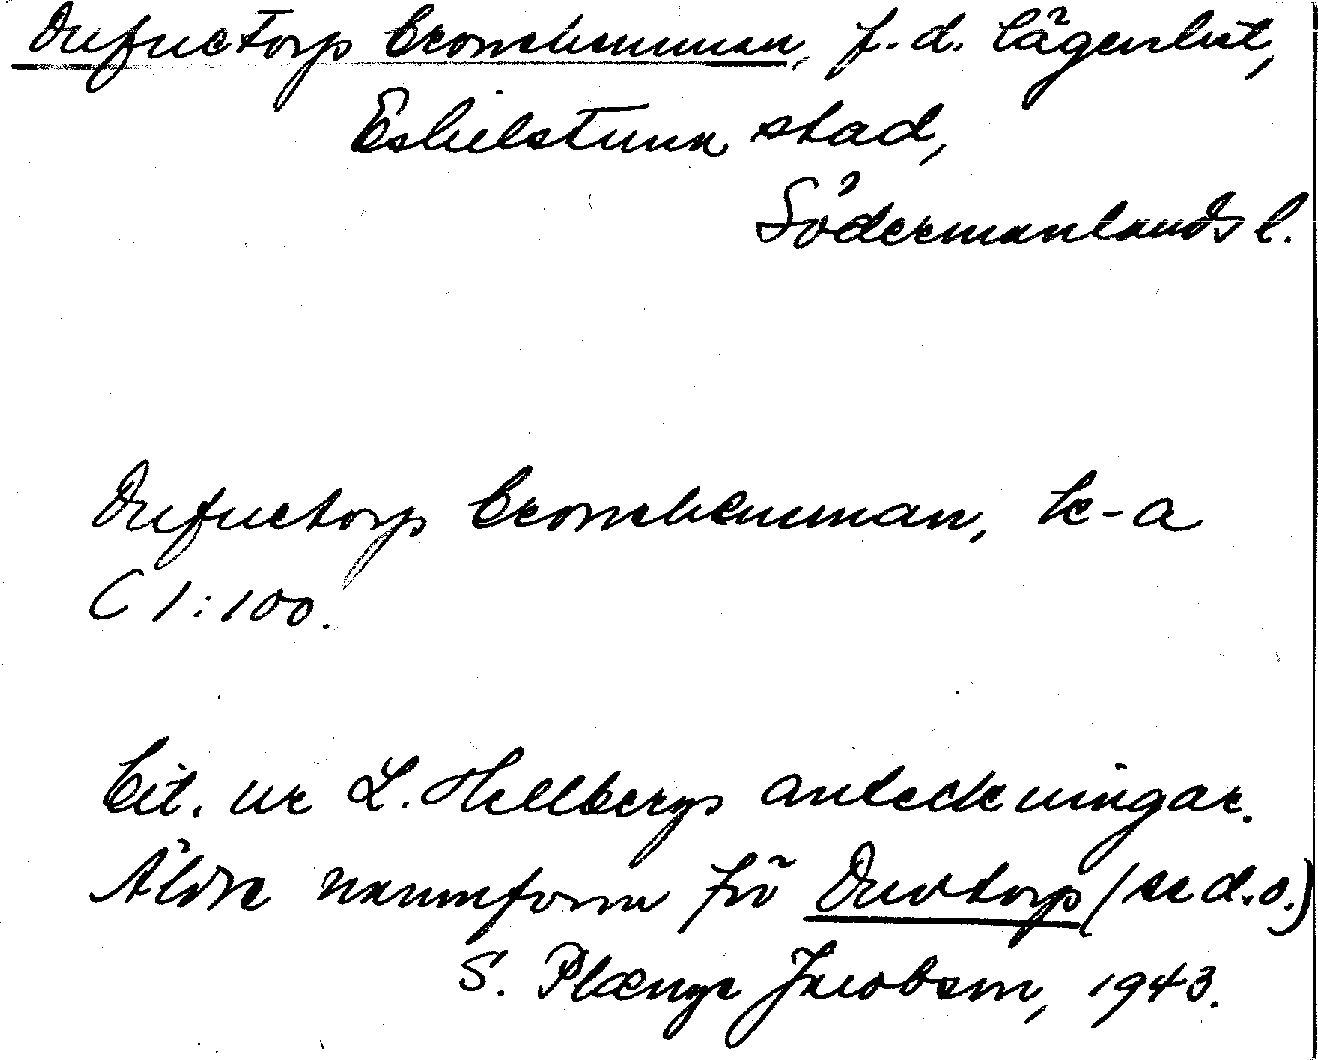 Dufuetorp Cronehemman, f.d. lägenhet,
Eskilstuna stad,
Södermanlands l.
Dufuetorp Cronehemman, k-a
C 1:100.
Cit. ur L. Hellbergs anteckningar.
Äldre namnform för Duvtorp (se d.o.)
S. Plænge Jacobson, 1943.